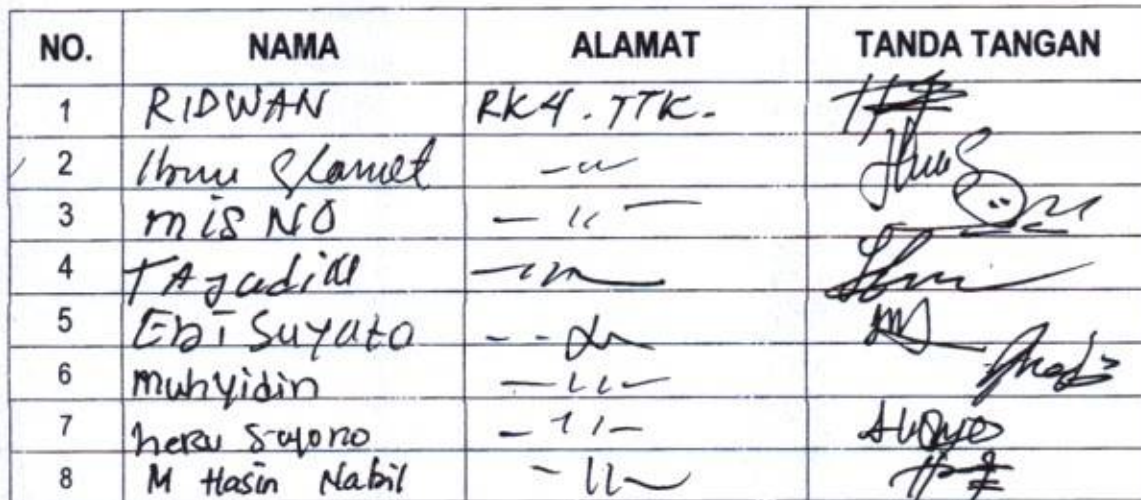 NO. NAMA ALAMAT TANDA TANGAN
1 RIDWAN RK4. TTK.
2 Ibnu Slamet -〃-
3 misNO -〃-
4 TAjudin -〃-
5 Suyato -〃-
6 Muhyidin -〃-
7 heru Suyono -〃-
8 M Hasin Nabil -〃-